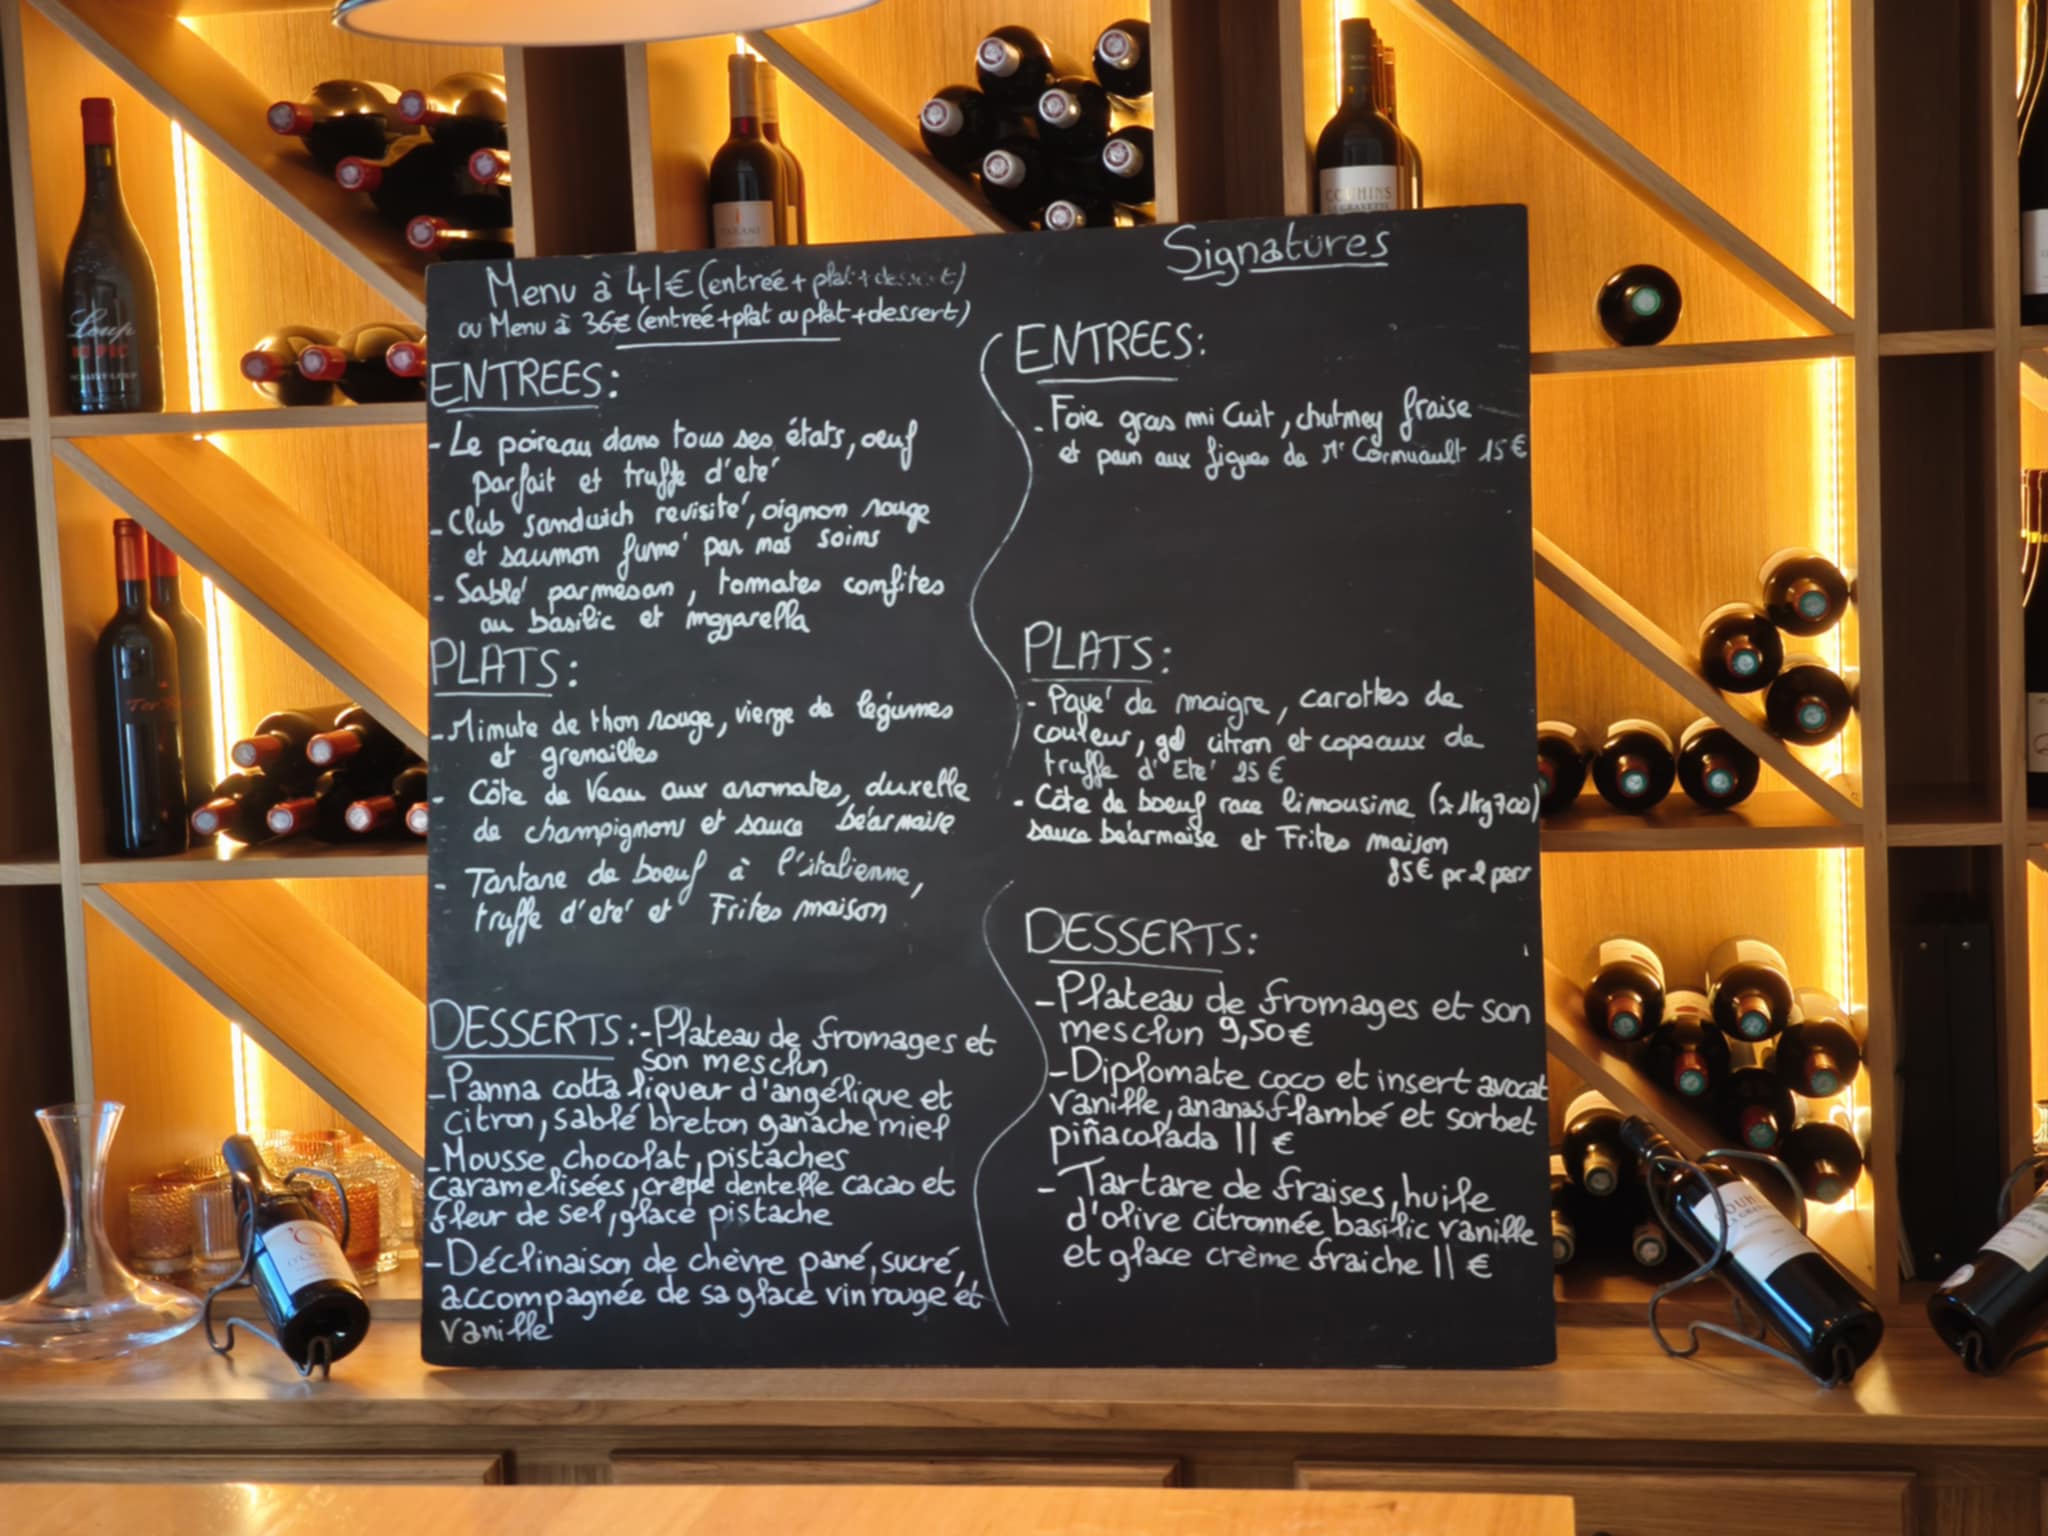 Menu à 41€ (entrée + plat + dessert)
ou Menu à 36€ (entreé+plat ou plat+dessert)
ENTREES:
- Le poireau dans tous ses états, oeuf
parfait et truffe d'eté
- Club sandwich revisité, oignon rouge
et saumon fumé par nos soins
- Sablé parmesan, tomates confites
au basilic et mozzarella
PLATS:
- Minute de thon rouge, vierge de légumes
et grenailles
- Côte de Veau aux aromates, duxelle
de champignons et sauce béarnaise
- Tartare de boeuf à l'italienne,
truffe d'eté et Frites maison
DESSERTS:-Plateau de fromages et
son mesclun
-Panna cotta liqueur d'angélique et
citron, sablé breton ganache miel
-Mousse chocolat, pistaches
caramelisées, crêpe dentelle cacao et
fleur de sel, glace pistache
-Déclinaison de chèvre pané, sucré,
accompagnée de sa glace vin rouge et
vanille
Signatures
ENTREES:
- Foie gras mi Cuit, chutney fraise
et pain aux figues de Mr Cormuault 15€
PLATS:
- Pavé de maigre, carottes de
couleur, gel citron et copeaux de
truffe d'Eté 25€
- Côte de boeuf race limousine (≈1kg700)
sauce béarnaise et Frites maison
85€ pr 2 pers
DESSERTS:
-Plateau de fromages et son
mesclun 9,50€
-Diplomate coco et insert avocat
vanille, ananas flambé et sorbet
piñacolada 11€
- Tartare de fraises, huile
d'olive citronnée basilic vanille
et glace crème fraiche 11€
Loup
COUHINS